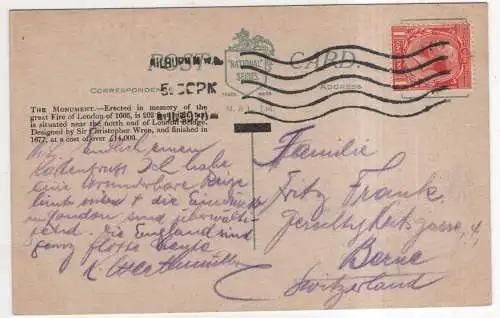 POST CARD.
"NATIONAL"
SERIES
TRADE MARK
M. & L., Ltd.
CORRESPONDENCE
ADDRESS
KILBURN N.W.6
5.30 PM
THE MONUMENT.—Erected in memory of the
great Fire of London of 1666, is 202
is situated near the north end of London Bridge.
Designed by Sir Christopher Wren, and finished in
1677, at a cost of over £14,000.
Endlich einen
Ich habe
eine wunderbare Reise
hinter & die Eindrücke
in London sind überwälti-
gend. Die England sind
ganz flotte Leute
Familie
Fritz Frank
Gerechtigkeitsgasse, 4,
Berne
Switzerland